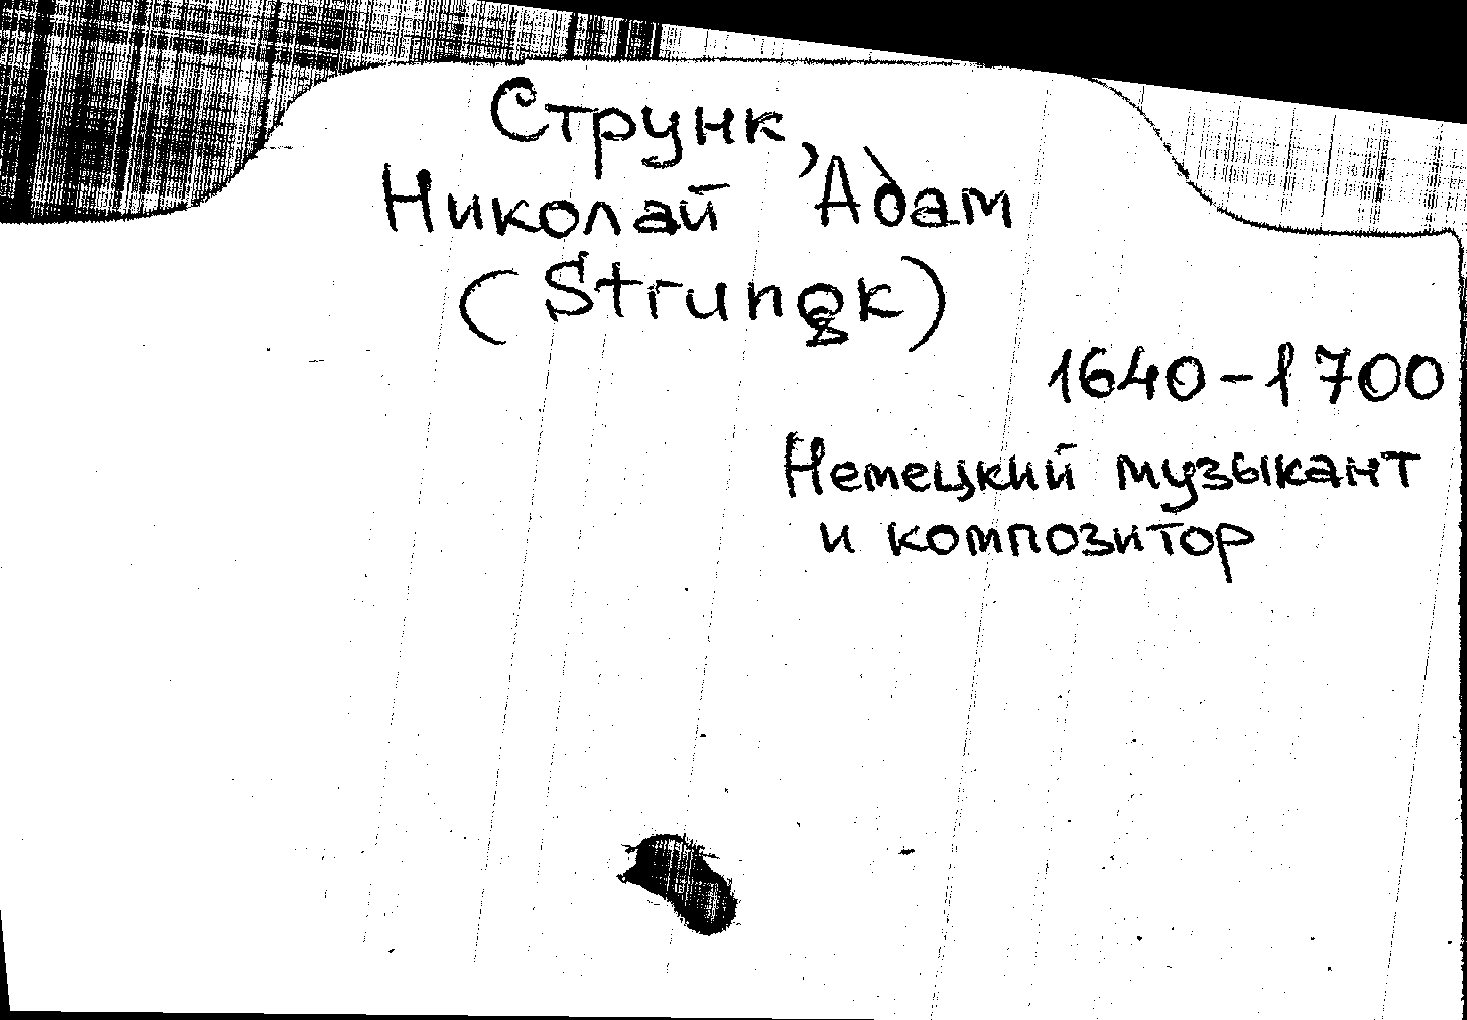 Струнк,
Николай Адам
(Strungk)
1640-1700
Немецкий музыкант
и композитор